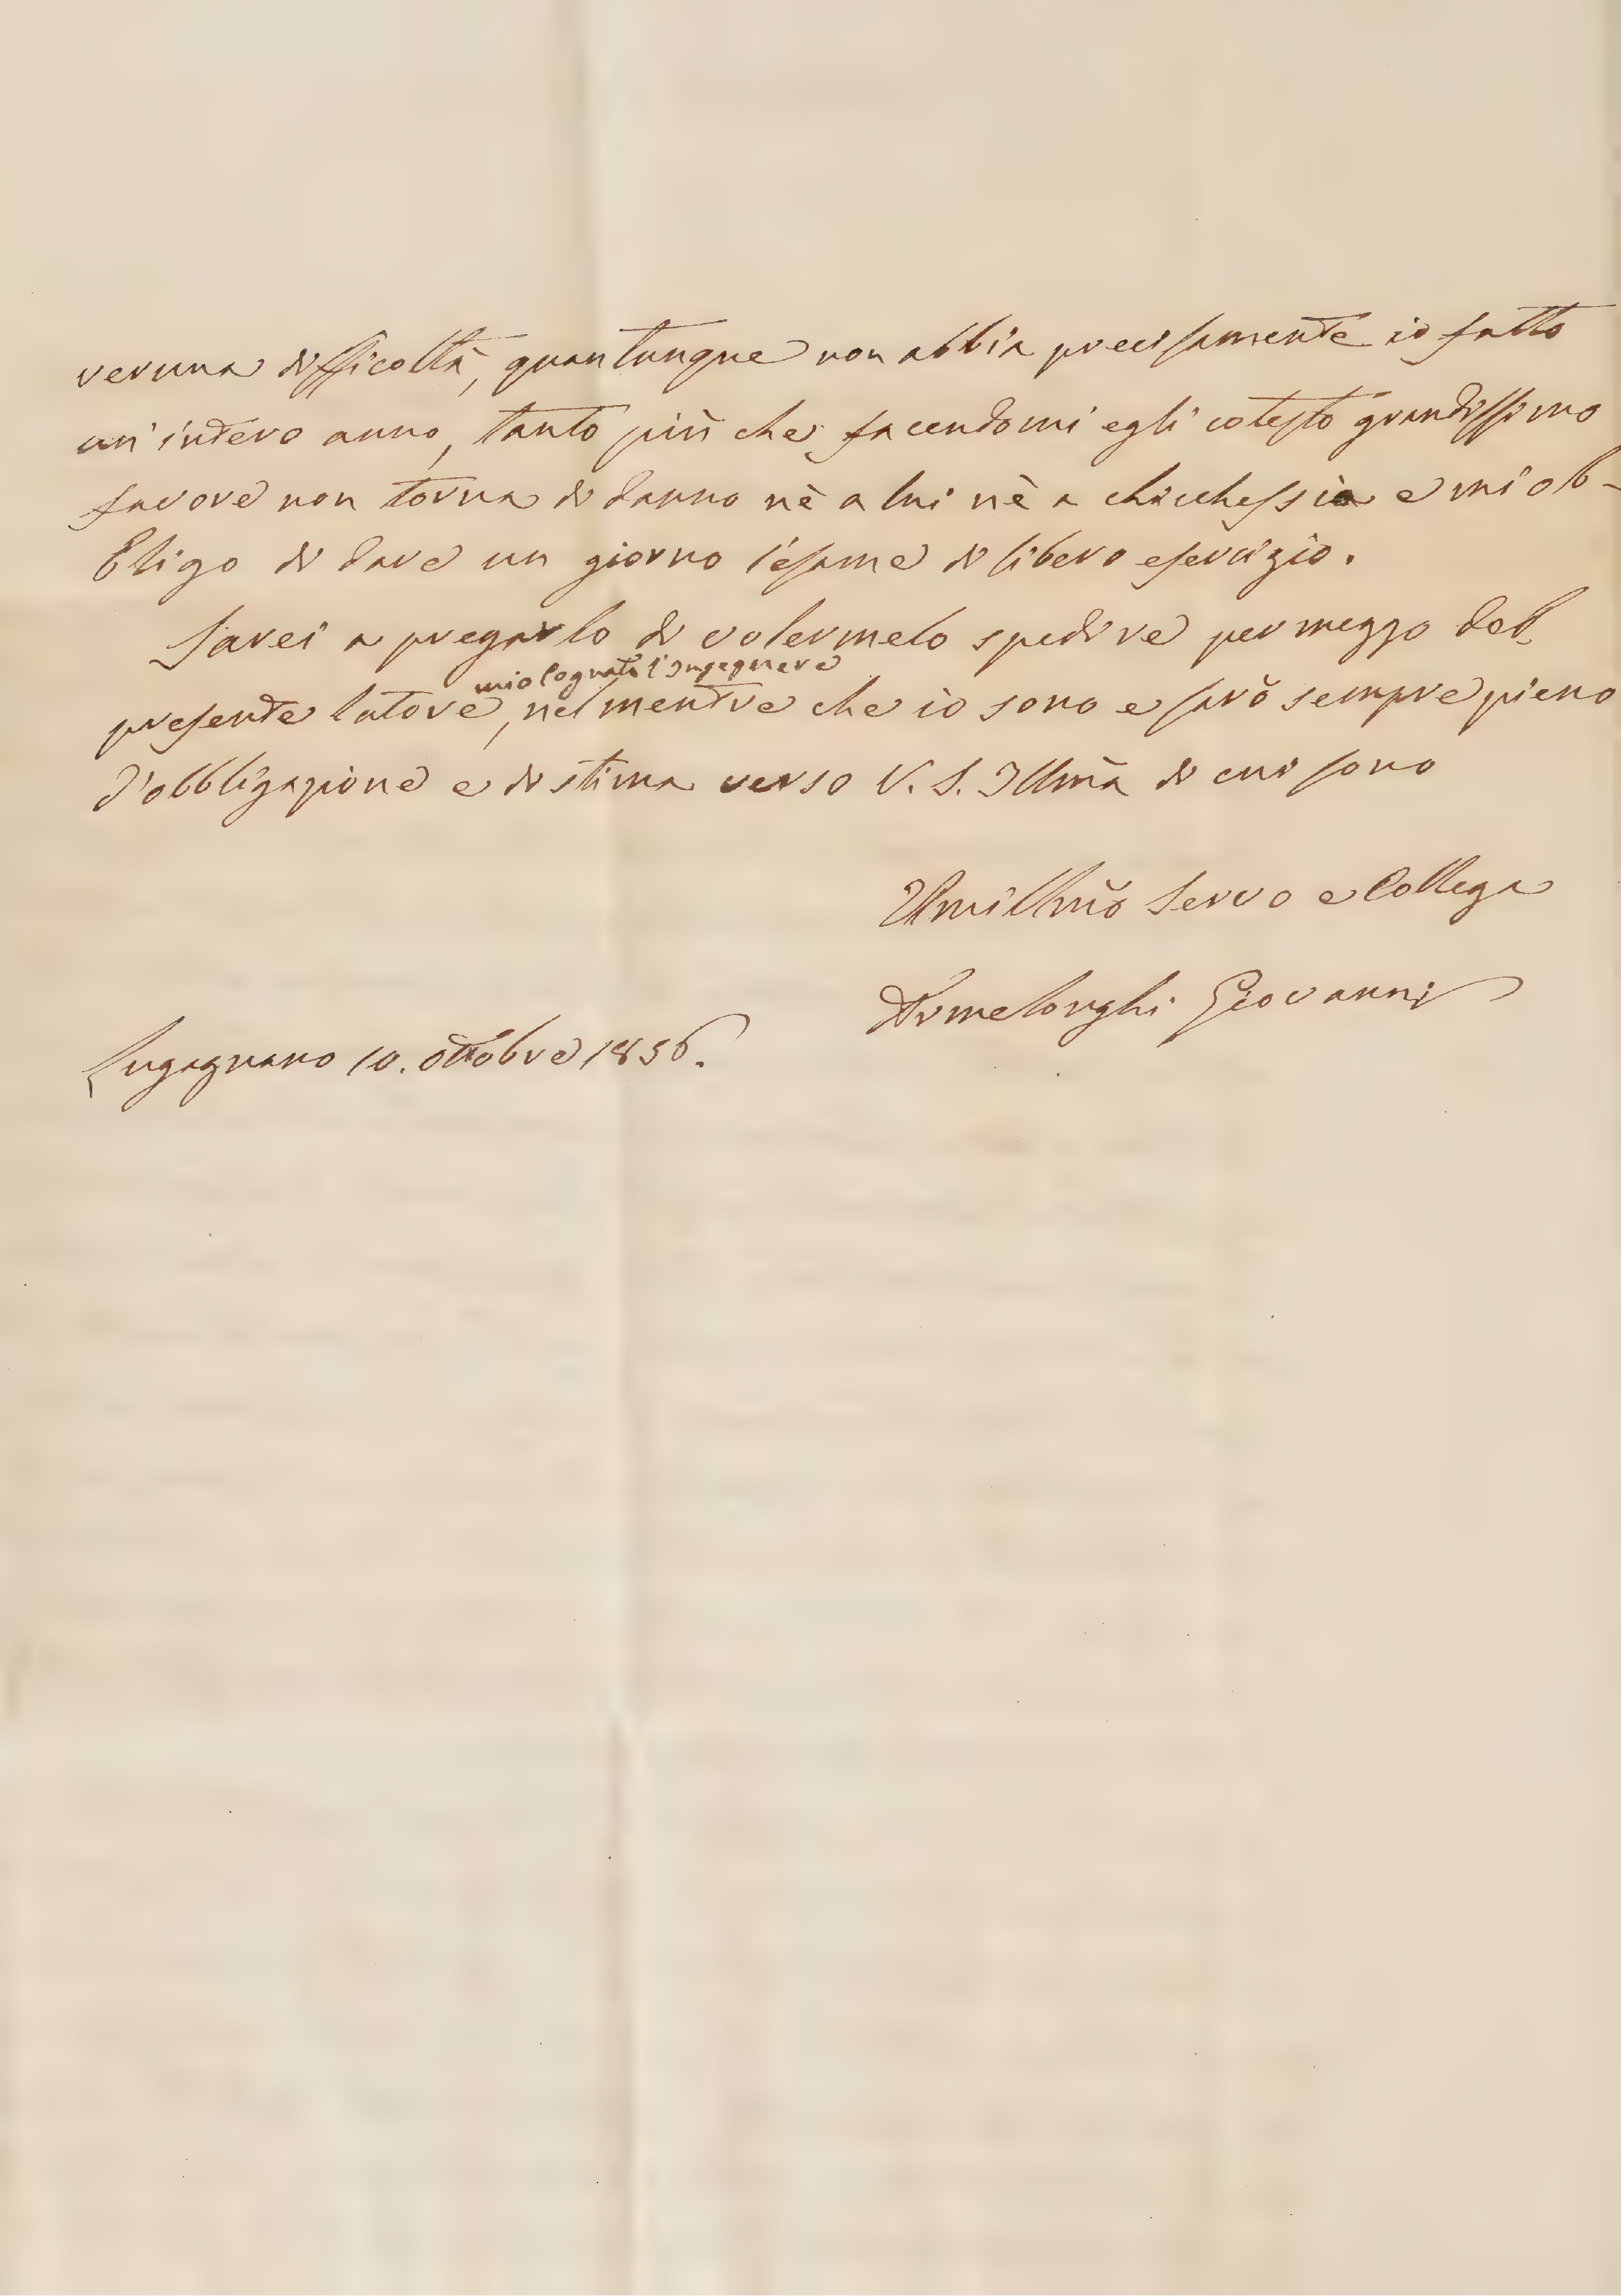 veruna difficoltà, quantunque non abbia precisamente io fatto
un'intero anno, tanto più che, facendomi egli cotesto grandissimo
favore non torna di danno nè a lui nè a chicchessia e mi ob-
bligo di dare un giorno l'esame di libero esercizio.
Sarei a pregarlo di volermelo spedire per mezzo del
mio Cognato l'Ingegnere
presente latore, nel mentre che io sono e sarò sempre pieno
d'obbligazione e di stima verso V. S. Illm̃a di cui sono
Umillm̃o Servo e Collega
Armelonghi Giovanni
Lugagnano 10. ottobre 1856.